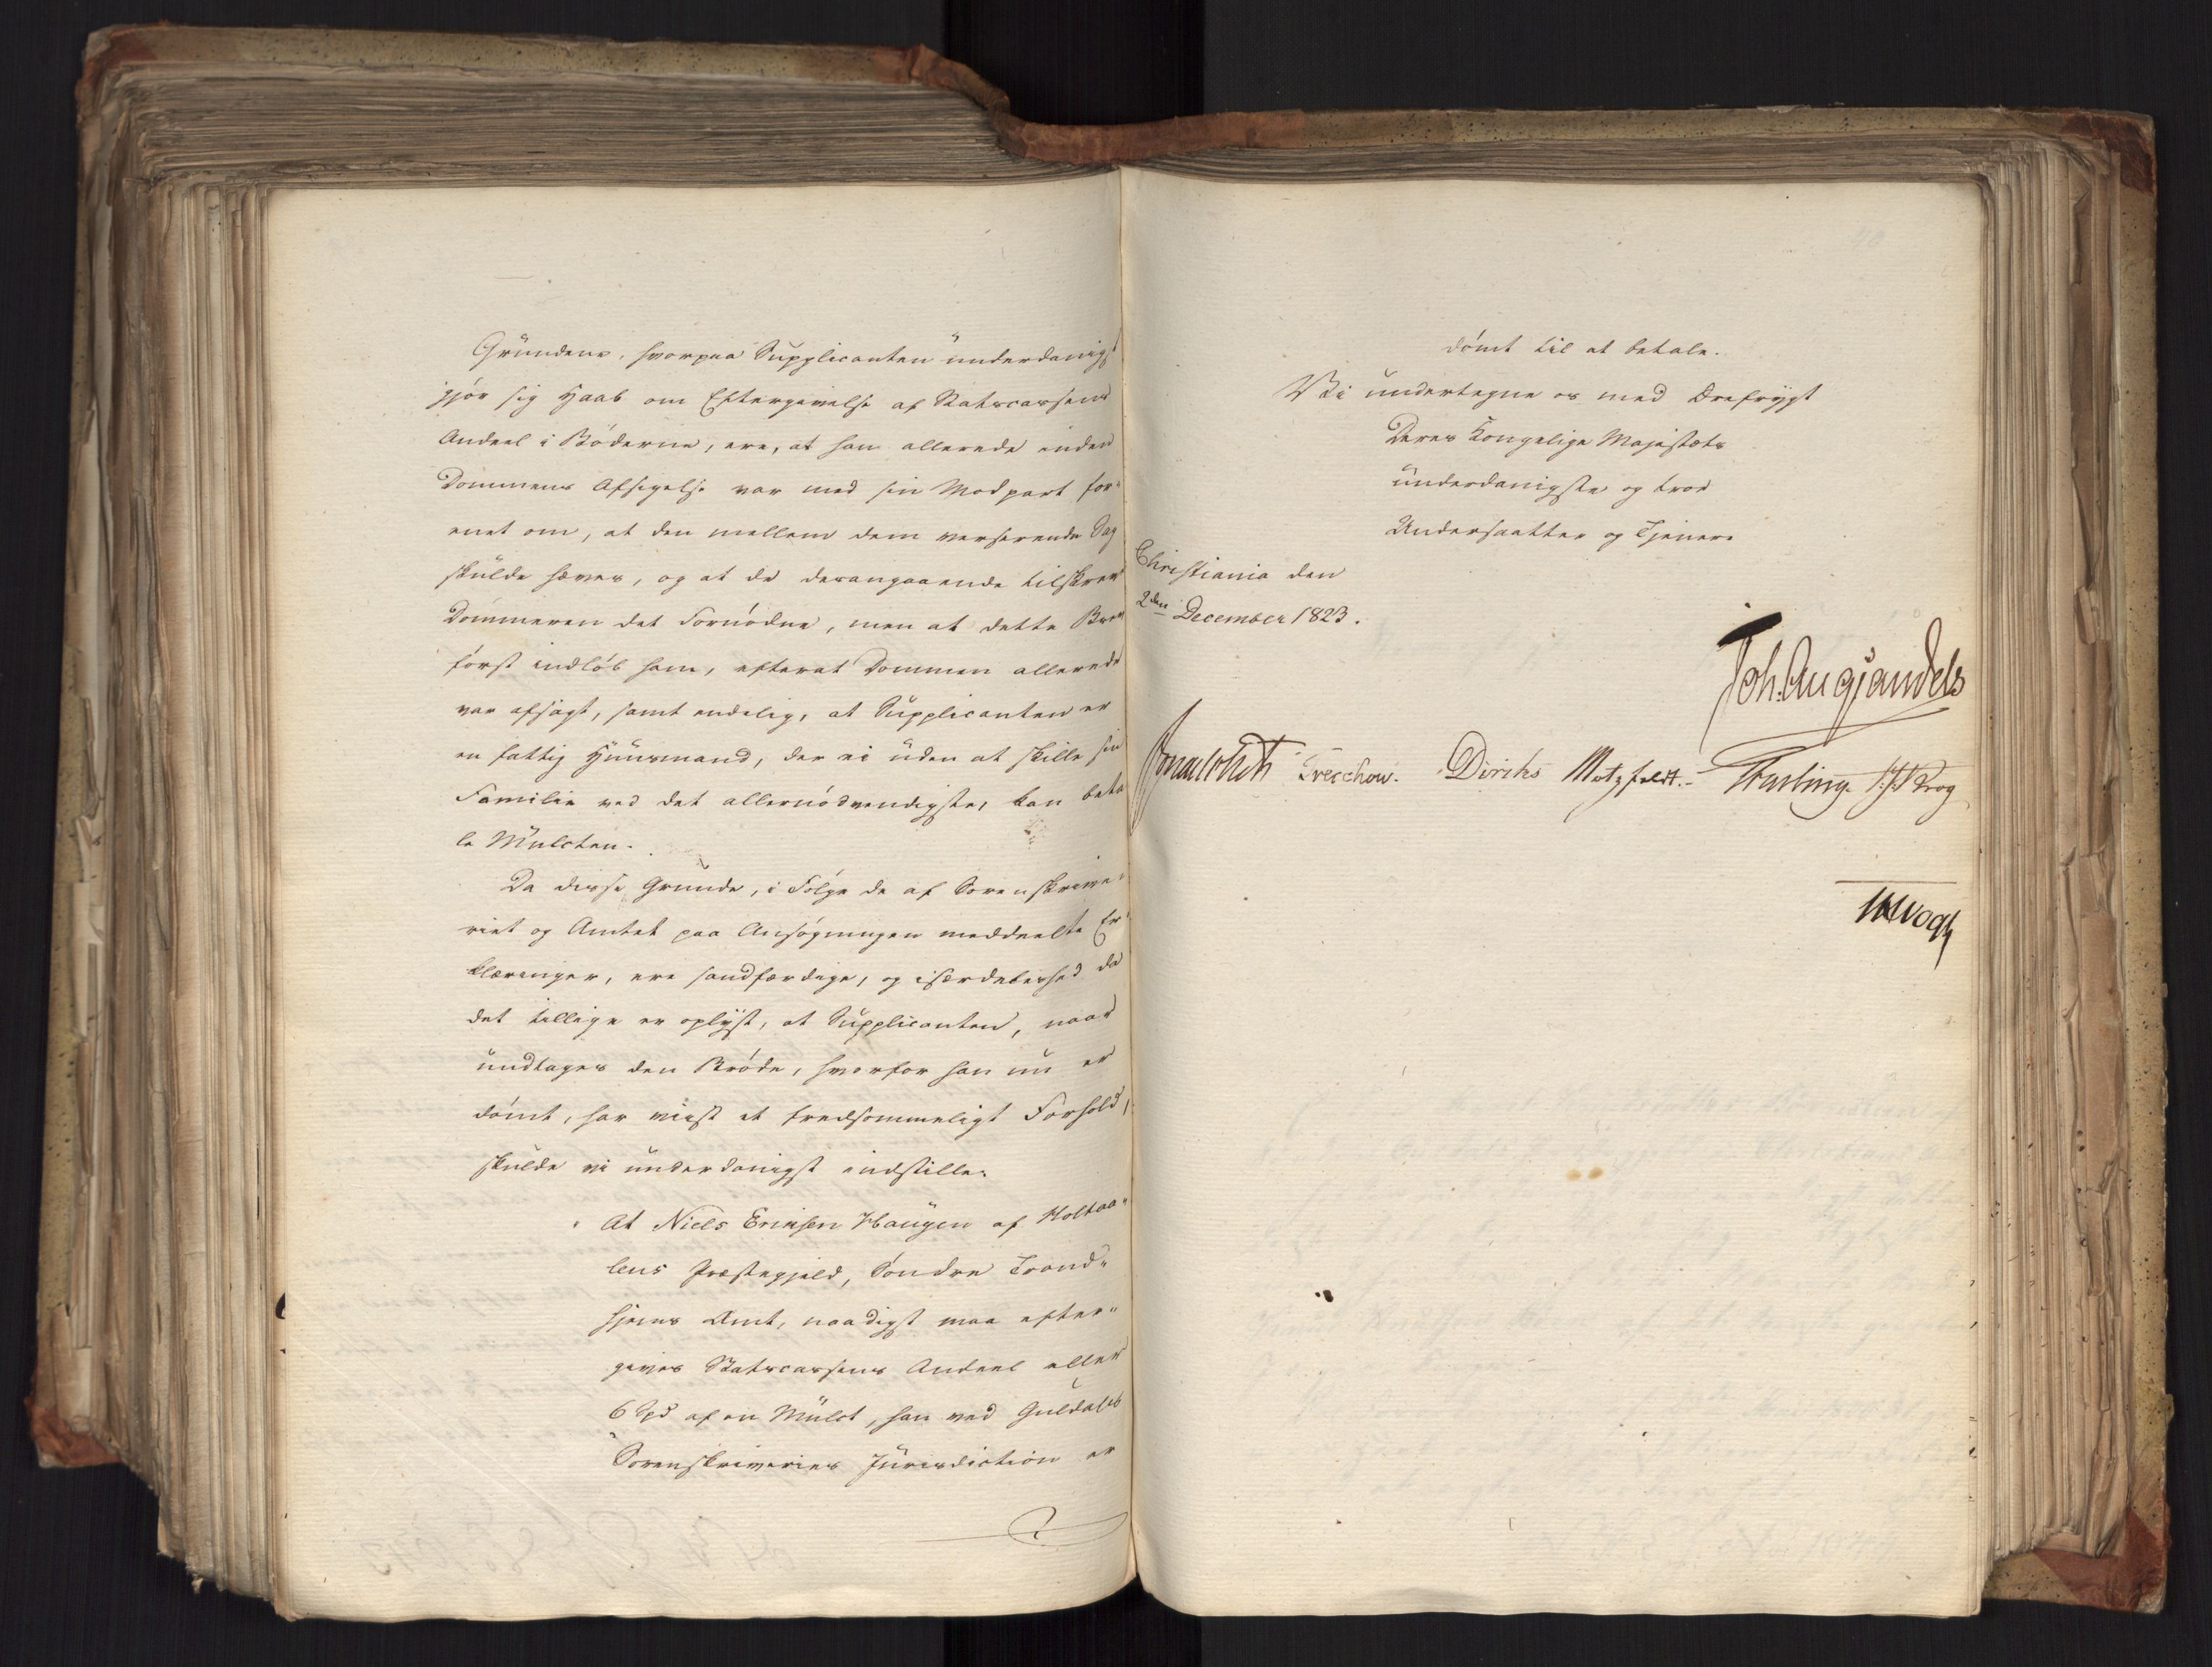 Grundene, hvorpaa Supplicanten underdanigst
gjør sig Haab om Eftergivelse af Statscassens
Andeel i Bøderne, ere, at han allerede inden
Dommens Afsigelse var med sin Modpart for-
enet om, at den mellem dem verserende Sag
skulde hæves, og at de desangaaende tilskrev
Dommeren det Fornødne, men at dette Brev
først indløb ham, efterat Dommen allerede
var afsagt, samt endelig, at Supplicanten er
en fattig Huusmand, der ei uden at skille sin
Familie ved det allernødvendigste, kan beta
le Mulcten.
Da disse Grunde, i Følge de af Sorenskrive-
riet og Amtet paa Ansøgningen meddeelte Er-
klæringer, ere sandfærdige, og isærdeleshed da
det tillige er oplyst, at Supplicanten, naar
undtages den Brøde, hvorfor han nu er
dømt, har viist et fredsommeligt Forhold,
skulde vi underdanigst indstille:
At Niels Eriksen Haugen af Holtaa-
lens Præstegjeld, Søndre Trond-
hjems Amt, naadigst maa efter-
gives Statscassens Andeel eller
6 Spd af en Mulct, han ved Guldals
Sorenskriveries Jurisdiction er
dømt til at betale.
Vi undertegne os med Ærefrygt
Deres Kongelige Majestæts
underdanigste og troe
Undersaatter og Tjenere
Christiania den
2den December 1823.
Joh. Aug Sandels
Jonas Collett Treschow. Diriks Motzfeldt. Fasting Krog
Vogt